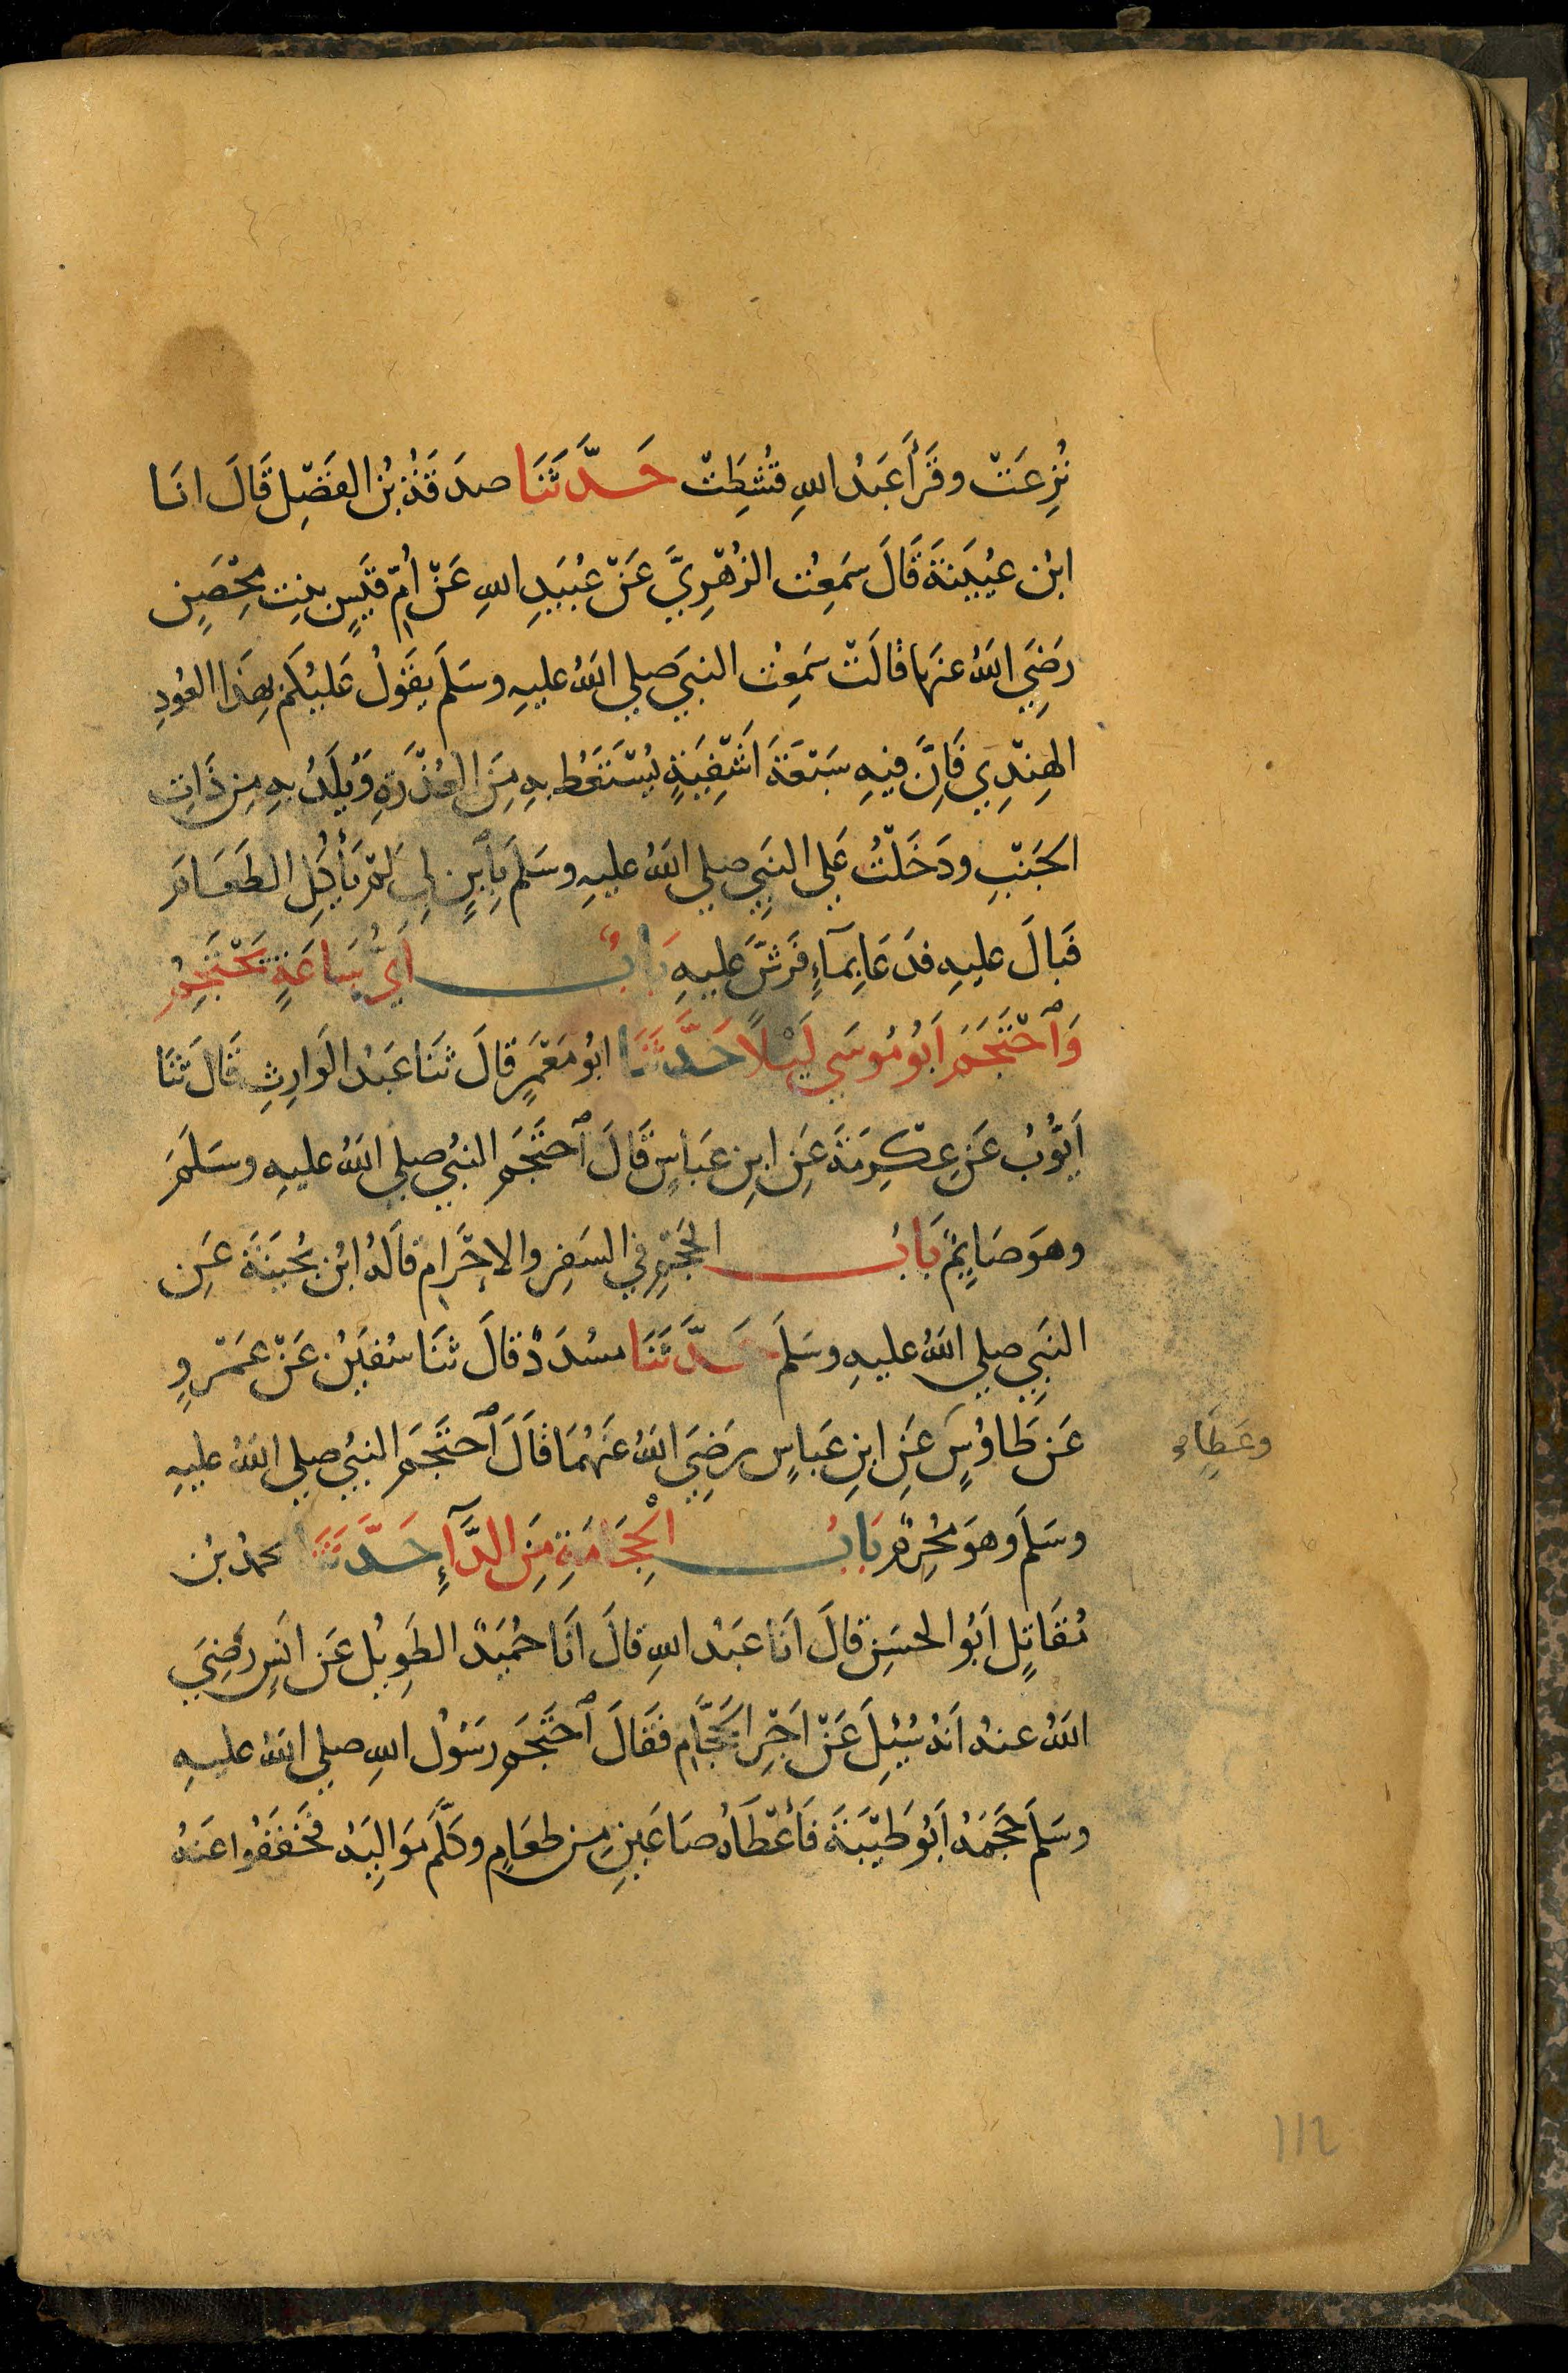 نُزِعَتْ وقَرَأَ عَبْدُ اللهِ قُشِطَتْ حَدَّثَنَا صدَقَةُ بْنُ الفَضْلِ قَالَ انَا
ابْن عُيَيْنَةَ قَالَ سَمِعْت الزُهْرِيَّ عَنْ عُبَيدِ اللهِ عَنْ اُمّ قَيْسٍ بنِت مِحْصَنٍ
رَضِيَ اللهُ عنهَا قالَتْ سَمِعْت النبيَ صلي اللهُ عليهِ وسَلَمَ يقَوُلُ عَليْكُم بِهَذا العُودِ
الهِنْدِي فَاِنَّ فيِهِ سَبْعَةَ اَشْفِيَةٍ يُسْتَعَطُ بهِ مِنَ العُذْرَةِ وَيُلَدُ بهِ مِن ذَاتِ
الجَنْبِ ودَخَلْتُ عَلي النبَيِ صلي اللهُ عليهِ وسَلَمَ بِاِبْنٍ لِي لَمْ يَأْكُلِ الطَعَامَ
فَبَالَ عليهِ فدَعَا بِمآءٍ فَرَشَّ عَليهِ بَابُ اَيُّ سَاعَةٍ تَحْتَجِمُ
وَٱحْتَجَمَ اَبُو مُوسَي لَيْلًا حَدَّثَنَا ابُو مَعْمَرٍ قالَ ثنَا عَبْدُ الوَارِثِ قَالَ ثنَا
اَيُّوْبُ عَن عِكْرِمَةَ عَنِ ابنِ عَبَاسٍ قَالَ ٱحتَجَمَ النبيُ صلي اللهُ عليهِ وسَلَمَ
وهوَ صَايِمٌ بَابُ الحَجْمِ فيِ السَفَرِ والاِحْرَامِ قالَهُ ابْن بُحَيْنَةَ عَنِ
النَبِي صلي اللهُ عليهِ وسَلَمَ حَدَّثَنَا مسُدَدٌ قالَ ثنَا سُفيَن عَنْ عَمْرٍو
عَن طَاوُسٍ عَنِ ابنِ عَبَاسٍ رضَيِ اللهُ عَنهُمَا قالَ ٱحتَجَمَ النبيُ صلي اللهُ عليهِ
وعَطِاءٍ
وسَلَمَ وهوَ مُحْرِمٌ بَابُ الْحِجَامَةِ مِنَ الدَّآءِ حَدَّثَنَا محمدُ بْن
مُقَاتِلٍ اَبُو الحسَنِ قَالَ اَنَا عَبْدُ اللهِ قالَ اَنَا حُمَيْدٌ الطَوِيْل عَن انَسٍ رَضِيَ
اللهُ عنهُ اَنهُ سُيِلَ عَنْ اَجْرِ الحَجَّامِ فقَالَ ٱحتَجَمَ رسَوُل اللهِ صلي اللهُ عليهِ
وسَلَمَ حَجَمَهُ اَبُو طَيْبَةَ فَأَعْطَاهُ صَاعَينِ مِن طعَامٍ وكَلَّمَ مَوَاليَهُ فخَفَفُوا عَنهُ
112